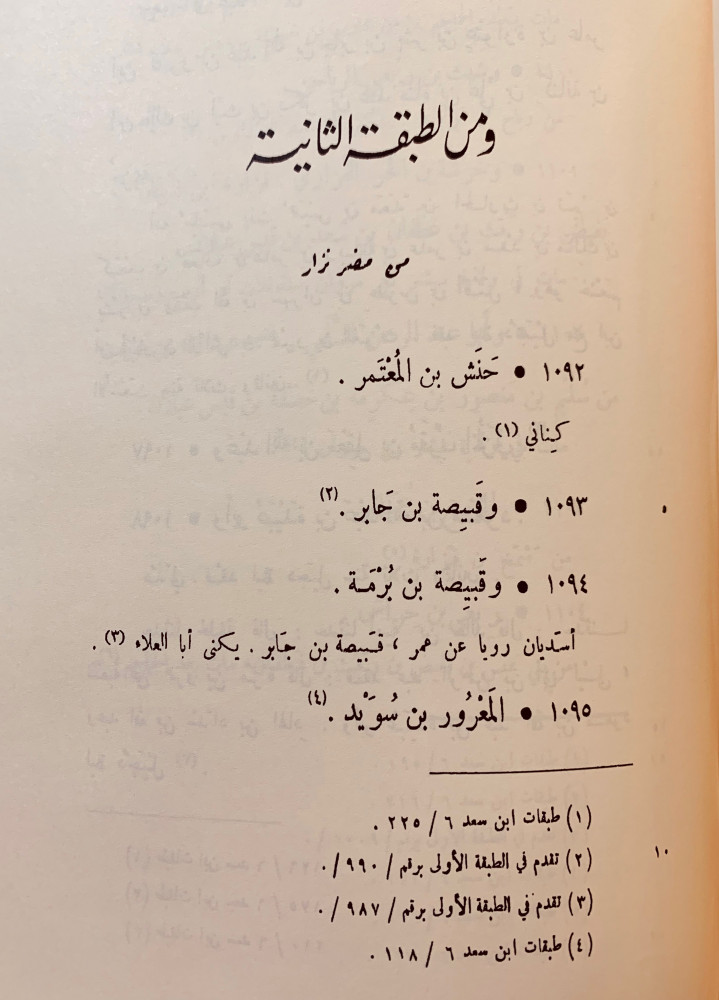 ومن الطبقة الثانية
من مضر نزار
١٠٩٢ • حَنَش بن المُعْتَمر .
كِناني (١) .
١٠٩٣ • وقَبِيصة بن جَابر .(٢)
١٠٩٤ • وقَبِيصة بن بُرْمَة .
أسَديان رويا عن عمر ، قَبيصة بن جَابر . يكنى أبا العلاء (٣) .
١٠٩٥ • المَعْرُور بن سُوَيْد .(٤)
(١) طبقات ابن سعد ٦ / ٢٢٥ .
(٢) تقدم في الطبقة الأولى برقم / ٩٩٠ / .
١٠
(٣) تقدم في الطبقة الأولى برقم / ٩٨٧ / .
(٤) طبقات ابن سعد ٦ / ١١٨ .